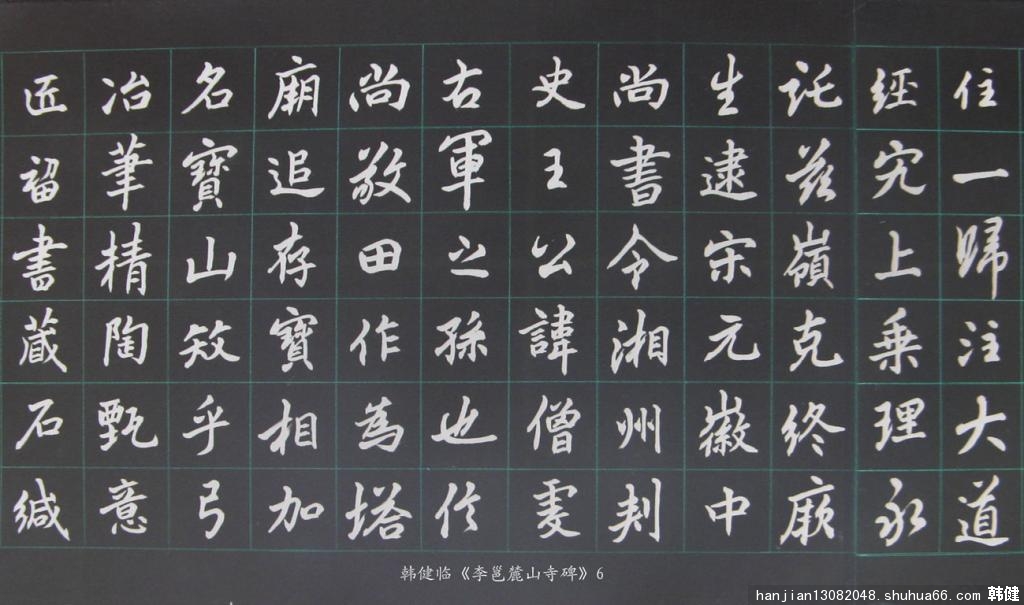 住一歸注大道
經究上乘理永
託茲嶺克終厥
生逮宋元徽中
尚書令湘州刾
史王公諱僧虔
右軍之孫也信
尚敬田作為塔
廟追存寶相加
名寶山效乎弓
冶筆精陶甄意
匠留書藏石緘
韩健临《李邕麓山寺碑》6
hanjian13082048.shuhua66.com 韩健